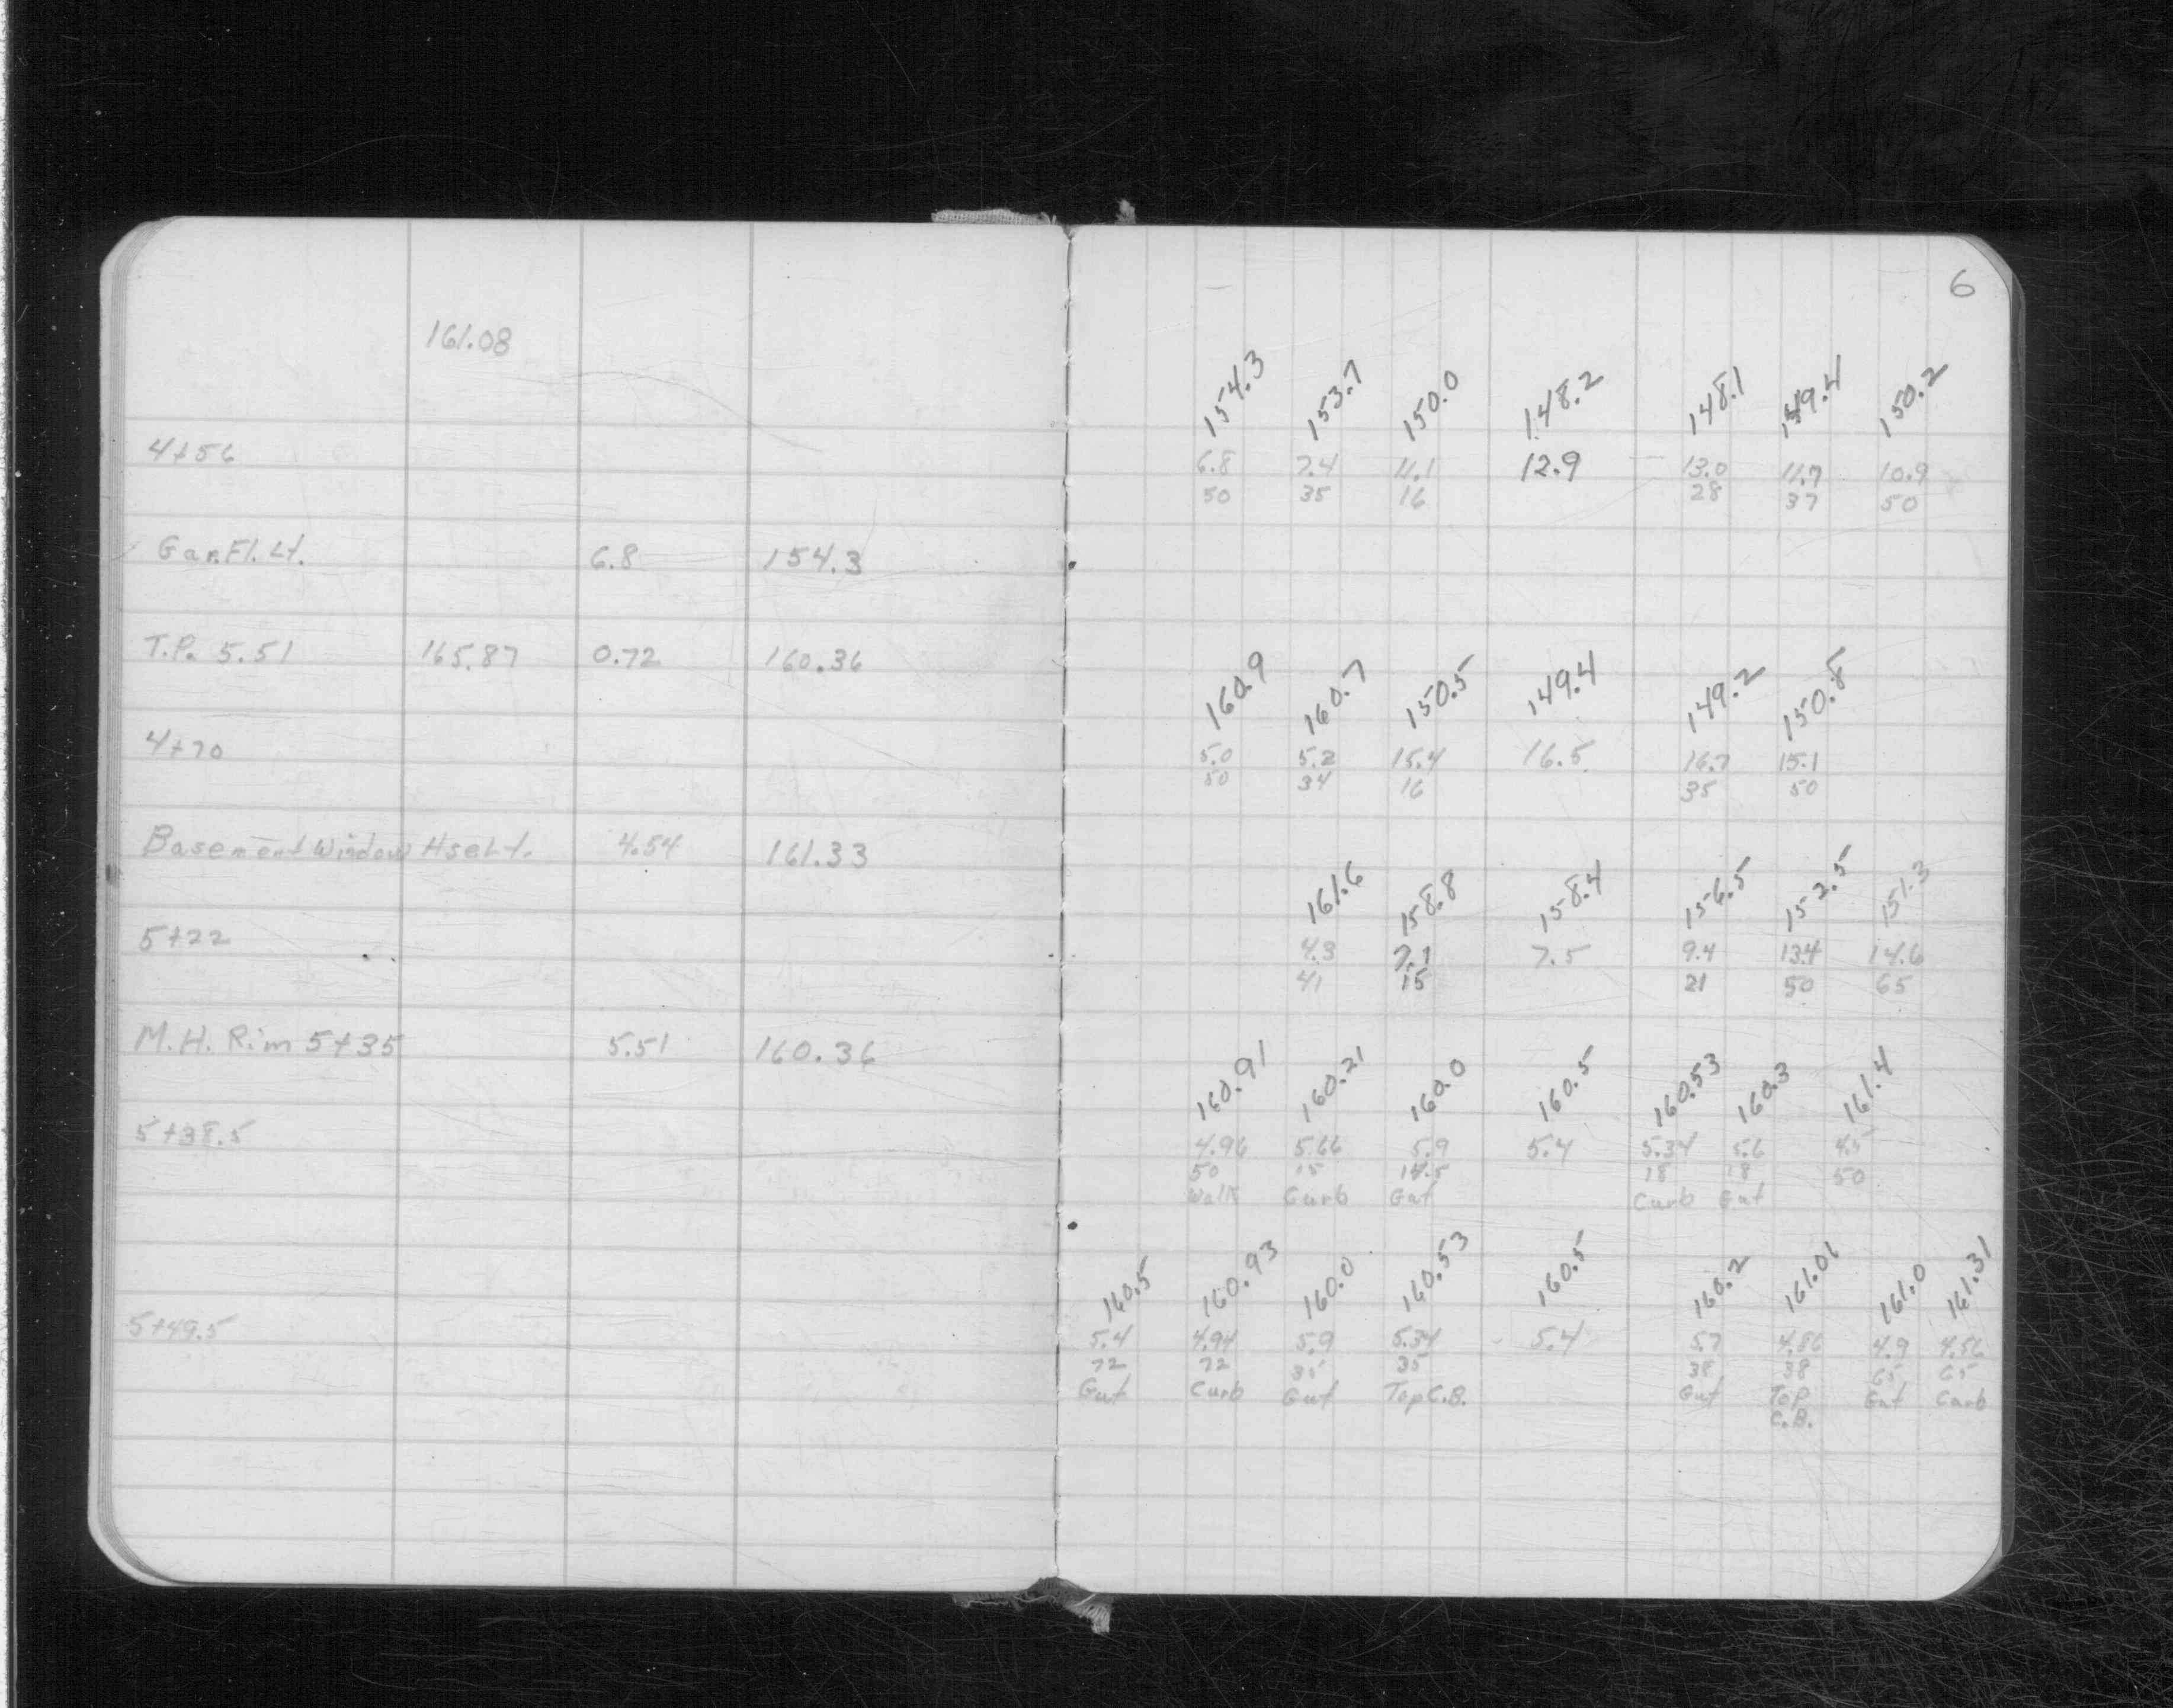 6
161.08
154.3 153.7 150.0 148.2 148.1 149.4 150.2
4+56 6.8 7.4 11.1 12.9 13.0 11.7 10.9
50 35 16 28 37 50
Gar.Fl. Lt. 6.8 154.3
T.P. 5.51 165.87 0.72 160.36
160.9 160.7 150.5 149.4 149.2 150.8
4+70 5.0 5.2 15.4 16.5 16.7 15.1
50 34 16 35 50
Basement Window Hse Lt. 4.54 161.33
161.6 158.8 158.4 156.5 152.5 151.3
5+22 4.3 7.1 7.5 9.4 13.4 14.6
41 15 21 50 65
M.H. Rim 5+35 5.51 160.36
160.91 160.21 160.0 160.5 160.53 160.3 161.4
5+38.5 4.96 5.66 5.9 5.4 5.34 5.6 4.5
50 15 14.5 18 18 50
Walk Curb Gut Curb Gut
160.5 160.93 160.0 160.53 160.5 160.2 161.01 161.0 161.31
5+49.5 5.4 4.94 5.9 5.34 5.4 5.7 4.86 4.9 4.56
72 72 35 35 38 38 65 65
Gut Curb Gut Top C.B. Gut Top Gut Curb
C.B.